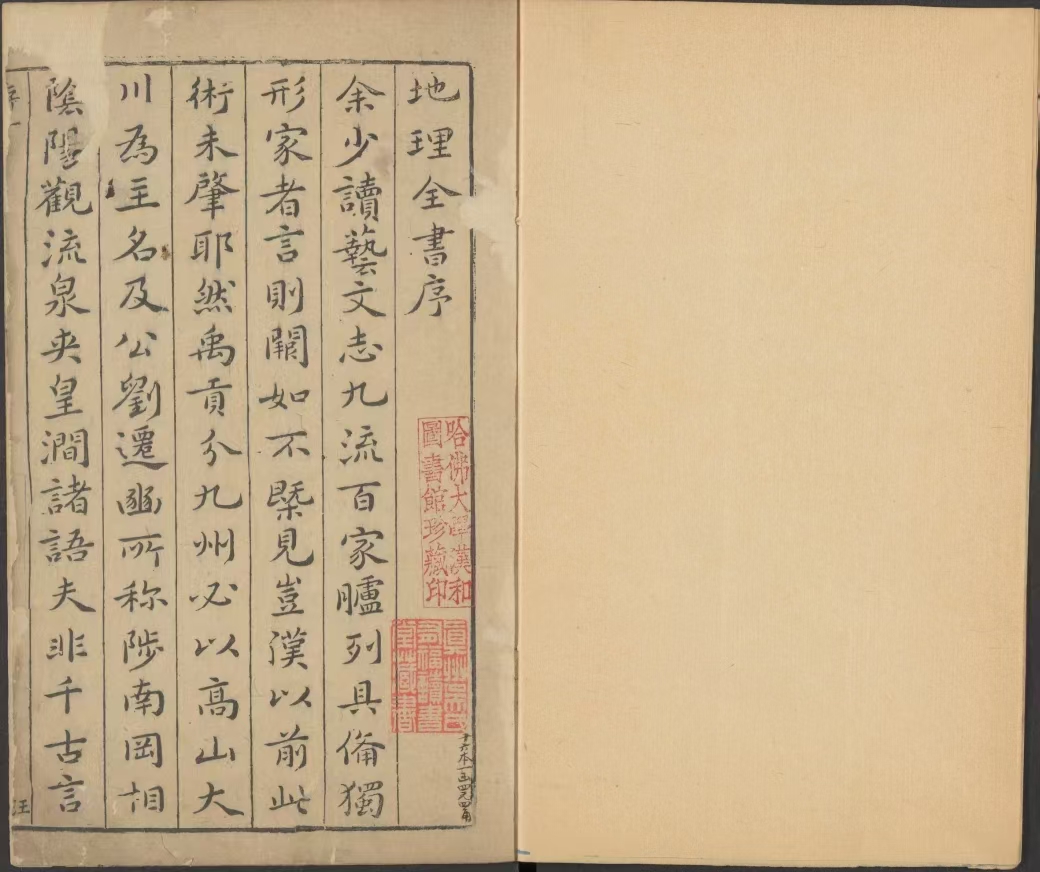 地理全書序
余少讀藝文志九流百家臚列具俻獨
形家者言則闕如不槩見豈漢以前此
術未肇耶然禹貢分九州必以高山大
川為主名及公劉遷豳所称陟南岡相
陰陽觀流泉夾皇澗諸語夫非千古言
哈佛大學漢和
圖書館珍藏印
序一
汪